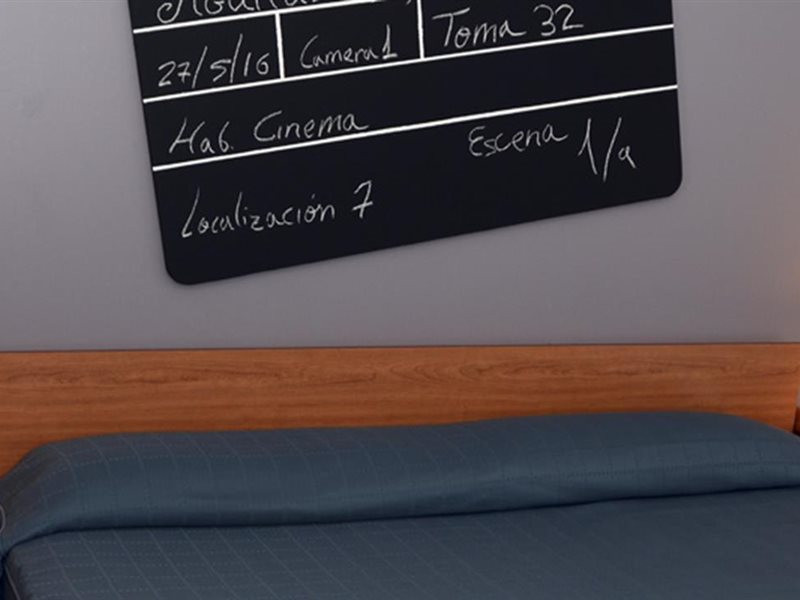 27/5/16 Camera 1 Toma 32
Hab. Cinema
Escena 1/a
Localización 7